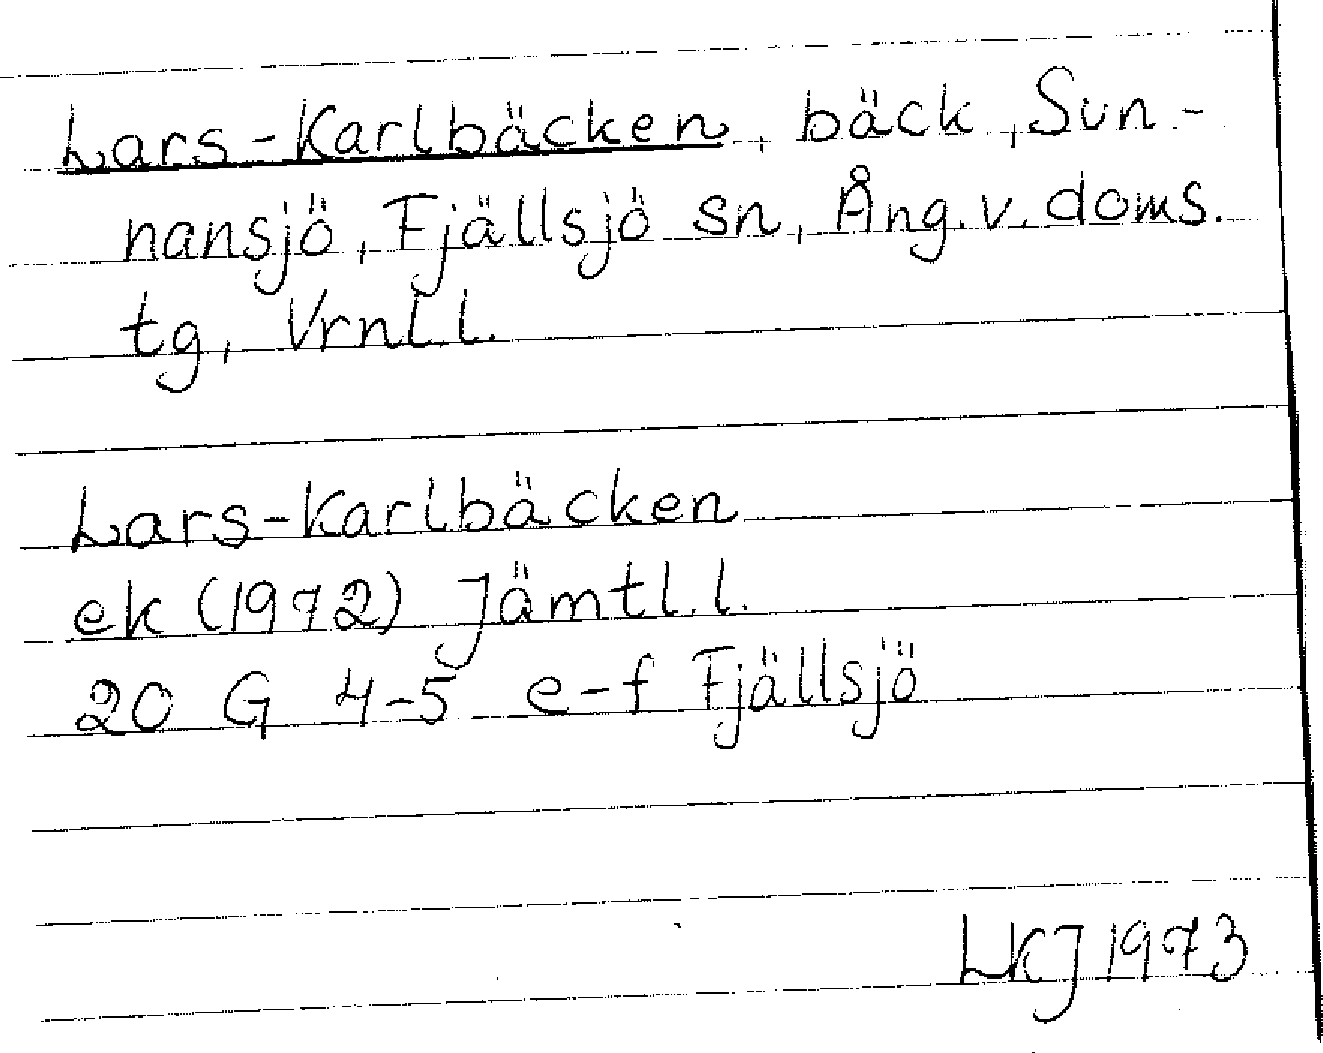 Lars-Karlbäcken, bäck, Sun-
nansjö, Fjällsjö sn, Ång.v.doms.
tg, Vrnl l.
Lars-Karlbäcken
ek (1972) Jämtl.l.
20 G 4-5 e-f Fjällsjö
LKJ 1973